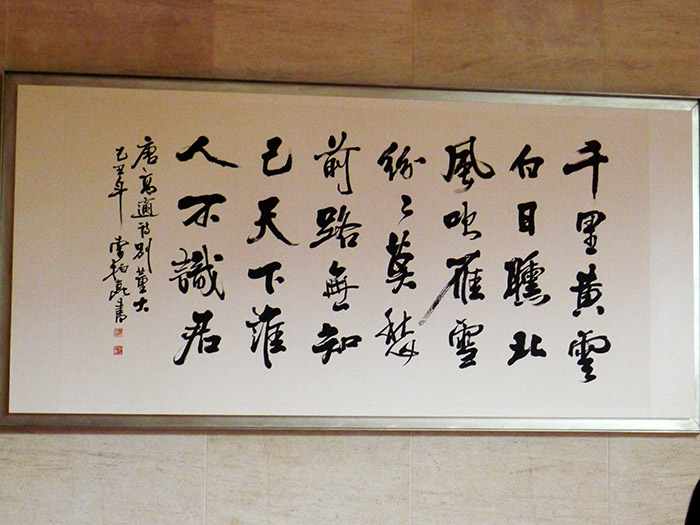 千里黃雲
白日曛北
風吹雁雪
紛〻莫愁
前路無知
己天下誰
人不識君
唐高適詩別董大
己丑年
書